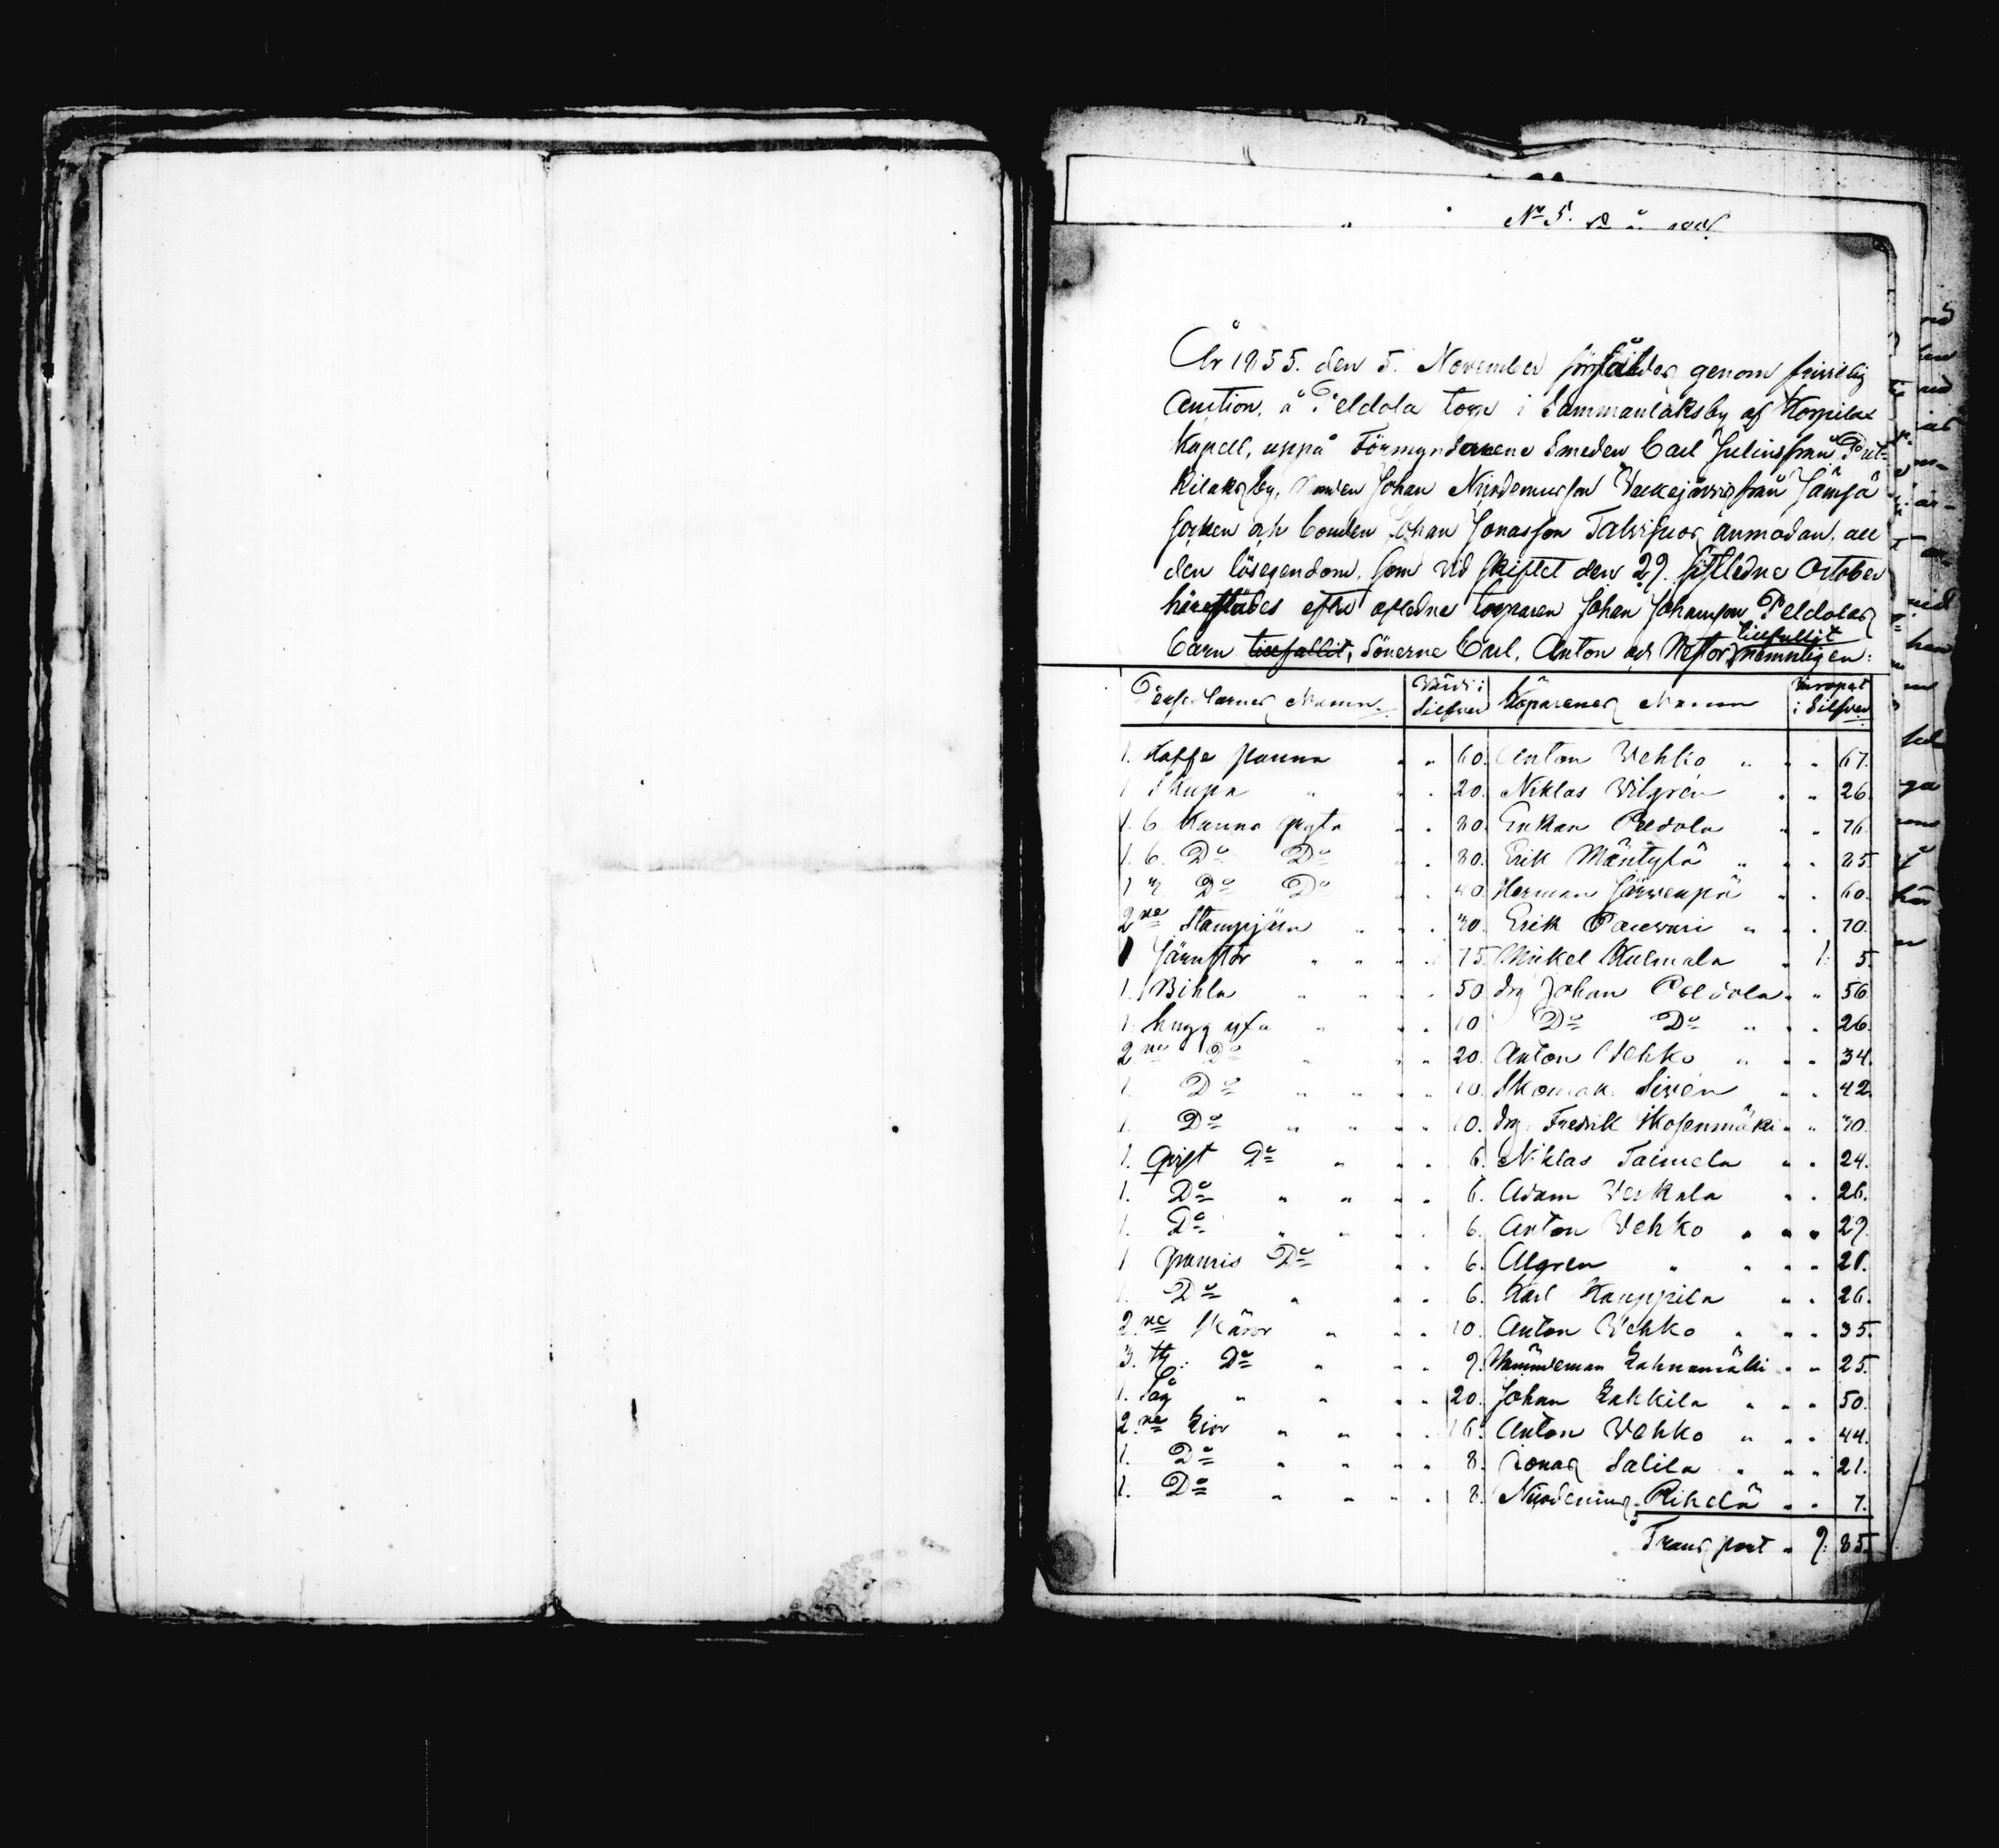 No 5.
År 1855. den 5. November försåldes genom frivillig
Auction, å Peldola torp i Sammanlaksby af Korpilax
Kapell, uppå Förmyndarene Smeden Carl Julius från Put-
kilaksby, Bonden Johan Nicodemusson Vackejärvis från Jämsä
socken och bonden Johan Jonasson Talvisuos anmodan, all
den lösegendom, som vid skiftet den 29. sistledne October
härstädes efter afledne torparen Johan Johansson Peldolas
barn tillfallit, Sönerne Carl, Anton och Nestor, tillfallit nemnligen:
Persedlarnes Namn. Värde i Silfver Köparenes Namn Inropat i Silfver
1. Kaffe panna " " 60. Anton Vehko " " " 67.
1 Skupa " " " 20. Niklas Vilgrén " " 26.
1. 6. Kanna gryta " " 80. Enkan Peldola " " 76.
1. 6. Do Do " " 80. Erik Mäntylä " " " 85.
1 Do Do " 40. Herman Järvenpä " " 60.
2ne Stampjärn " " " 30. Erik Pauvari " " " 70.
1 Järnstör " " " " 75. Mickel Kulmala " 1: 5.
1. Bihla " " " " 50. drg Johan Peldola " " 56.
1. hugg yxa " " " 10. Do Do " " " 26.
2ne Do " " " 20. Anton Vehko " " " 34.
1. Do " " " " 10. Skomak. Sirén " " 42.
1. Do " " " " 10. drg. Fredrik Kosenmäki " " 30.
1. Qvist Do " " " 6. Niklas Taimela " " 24.
1. Do " " " " 6. Adam Veskala " " 26.
1. Do " " " " 6. Anton Vehko " " " 29.
1 Do " " 6. Algren " " " " 28.
1. Do " " " 6. Karl Kauppila " " 26.
2.ne Skäror " " " 10. Anton Vehko " " " 35.
3. Do " " " 9. Nämdeman Lahnamäki " " 25.
1. Såg " " " " 20. Johan Lakkila " " " 50.
2.ne Liar " " " 16. Anton Vehko " " " 44.
1. Do " " " " 8. Jonas Salila " " " 21.
1. Do " " " " 8. Nicodemus Pihclä " " 7.
Transport " 9: 85.